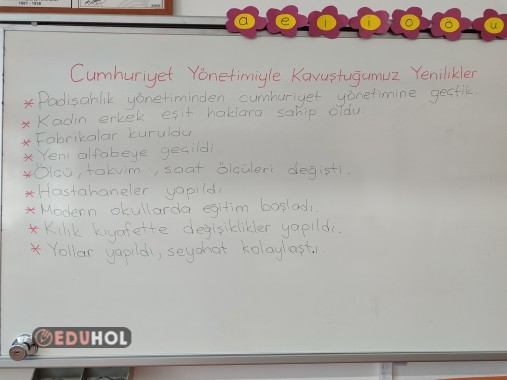 1881 - 1938
a e ı i o ö u
Cumhuriyet Yönetimiyle Kavuştuğumuz Yenilikler
* Padişahlık yönetiminden cumhuriyet yönetimine geçtik.
* Kadın erkek eşit haklara sahip oldu.
* Fabrikalar kuruldu
* Yeni alfabeye geçildi
* Ölçü, takvim, saat ölçüleri değişti.
* Hastahaneler yapıldı
* Modern okullarda eğitim başladı.
* Kılık kıyafette değişiklikler yapıldı.
* Yollar yapıldı, seyahat kolaylaştı.
EDUHOL